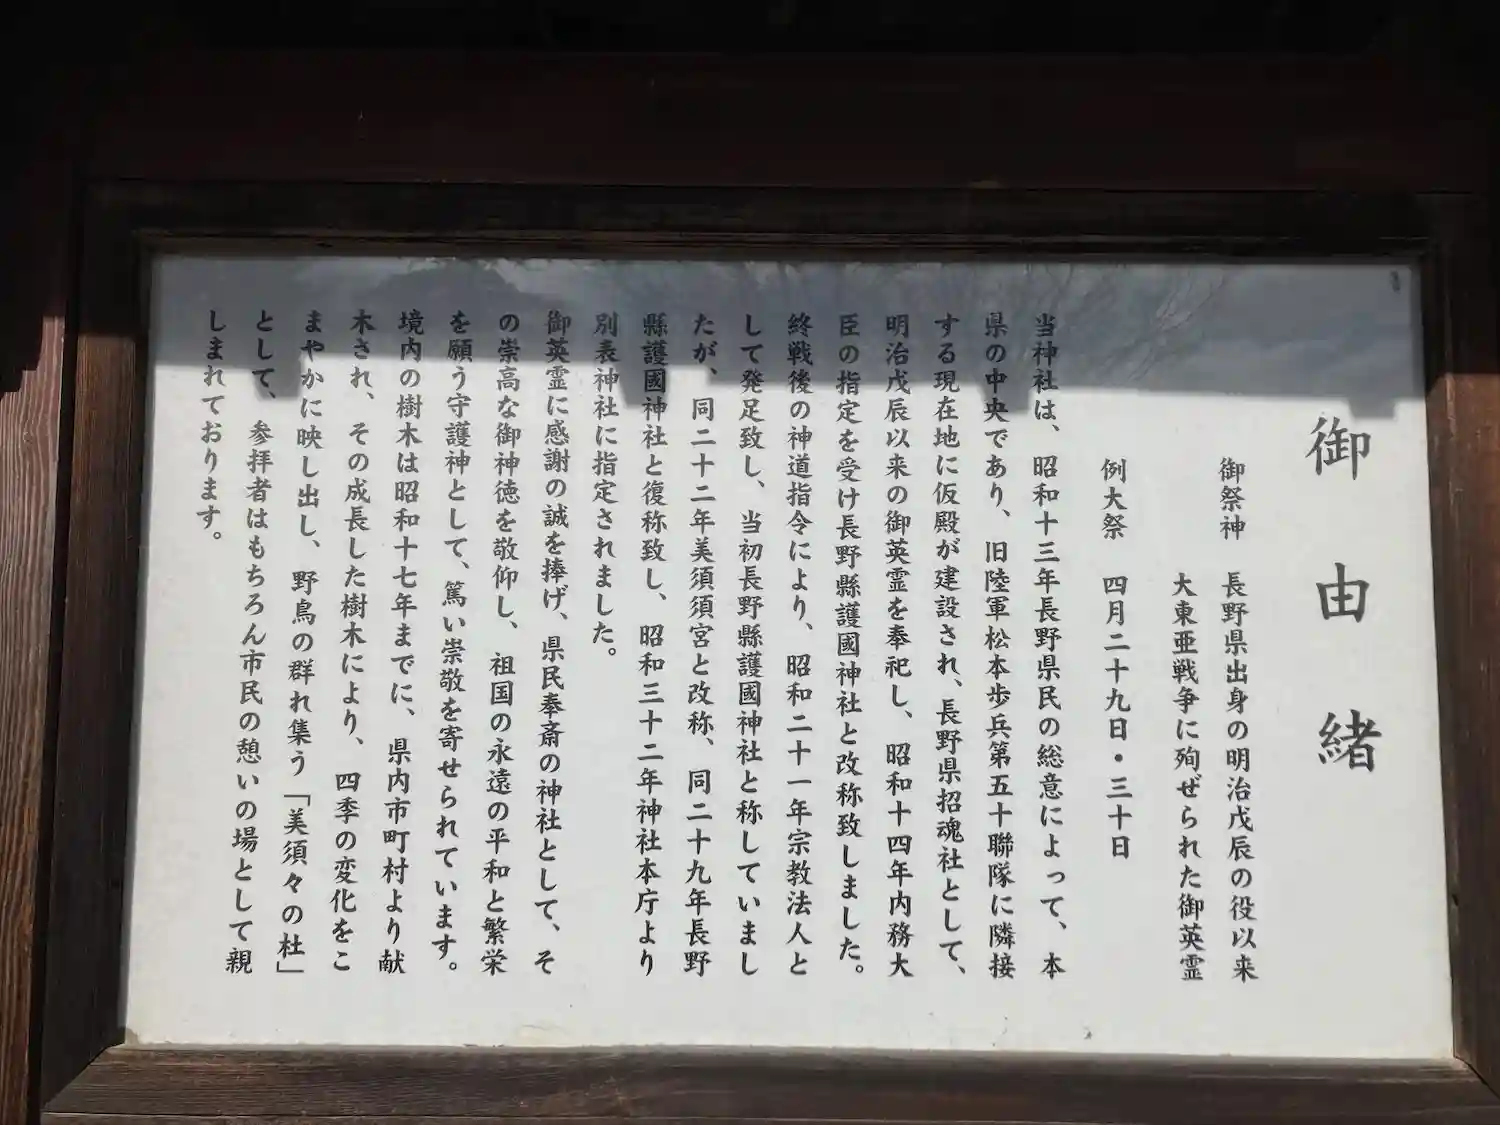 御由緒
御祭神　長野県出身の明治戊辰の役以来
大東亜戦争に殉ぜられた御英霊
例大祭　四月二十九日・三十日
当神社は、昭和十三年長野県民の総意によって、本
県の中央であり、旧陸軍松本歩兵第五十聯隊に隣接
する現在地に仮殿が建設され、長野県招魂社として、
明治戊辰以来の御英霊を奉祀し、昭和十四年内務大
臣の指定を受け長野縣護國神社と改称致しました。
終戦後の神道指令により、昭和二十一年宗教法人と
して発足致し、当初長野縣護國神社と称していまし
たが、同二十二年美須須宮と改称、同二十九年長野
縣護國神社と復称致し、昭和三十二年神社本庁より
別表神社に指定されました。
御英霊に感謝の誠を捧げ、県民奉斎の神社として、そ
の崇高な御神徳を敬仰し、祖国の永遠の平和と繁栄
を願う守護神として、篤い崇敬を寄せられています。
境内の樹木は昭和十七年までに、県内市町村より献
木され、その成長した樹木により、四季の変化をこ
まやかに映し出し、野鳥の群れ集う「美須々の杜」
として、参拝者はもちろん市民の憩いの場として親
しまれております。